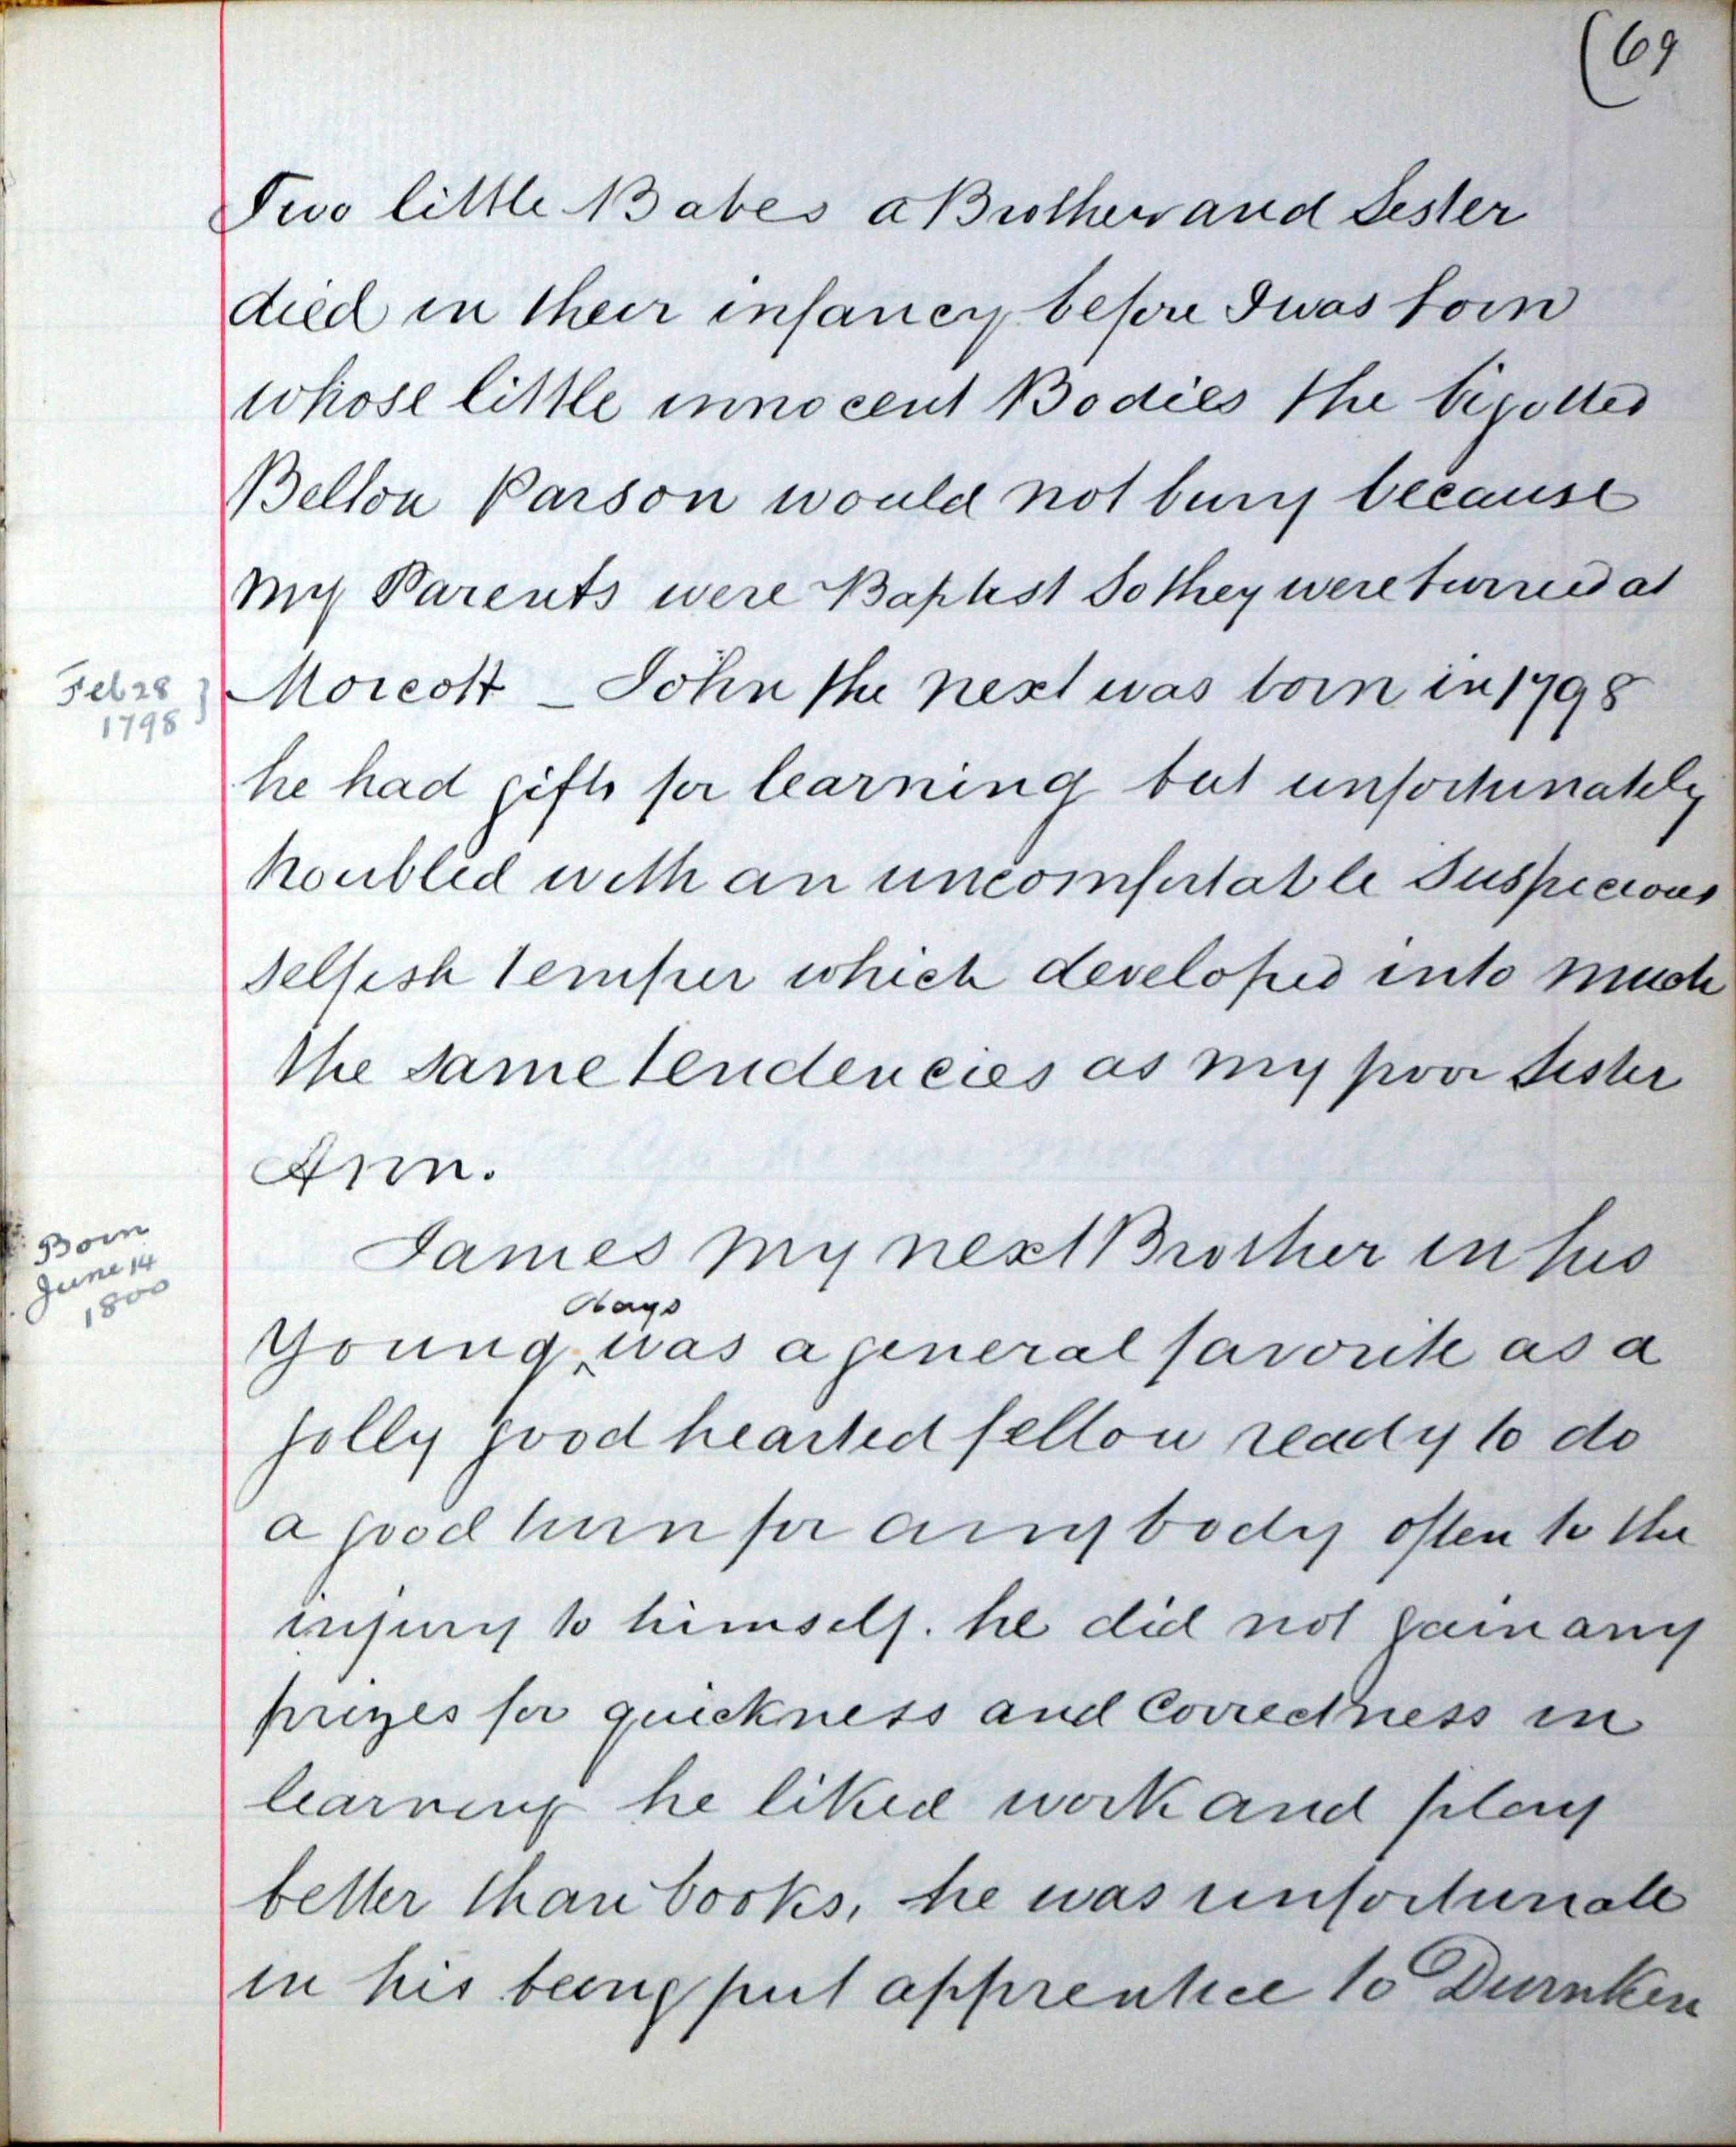 (69
Two little Babes a Brother and Sister
died in their infancy before I was born
whose little innocent Bodies the bigotted
Belton Parson would not bury because
my Parents were Baptist So they were buried at
Feb 28
1798 }
Morcott _ John the next was born in 1798
he had gifts for learning but unfortunately
troubled with an uncomfortable Suspicious
selfish temper which developed into much
the same tendencies as my poor Sister
Ann.
Born
June 14
1800
James my next Brother in his
Days
Young was a general favorite as a
jolly good hearted fellow ready to do
a good turn for any body often to the
injury to himself. he did not gain any
prizes for quickness and Correctness in
learning he liked work and play
better than books, he was unfortunate
in his being put apprentice to Durnken